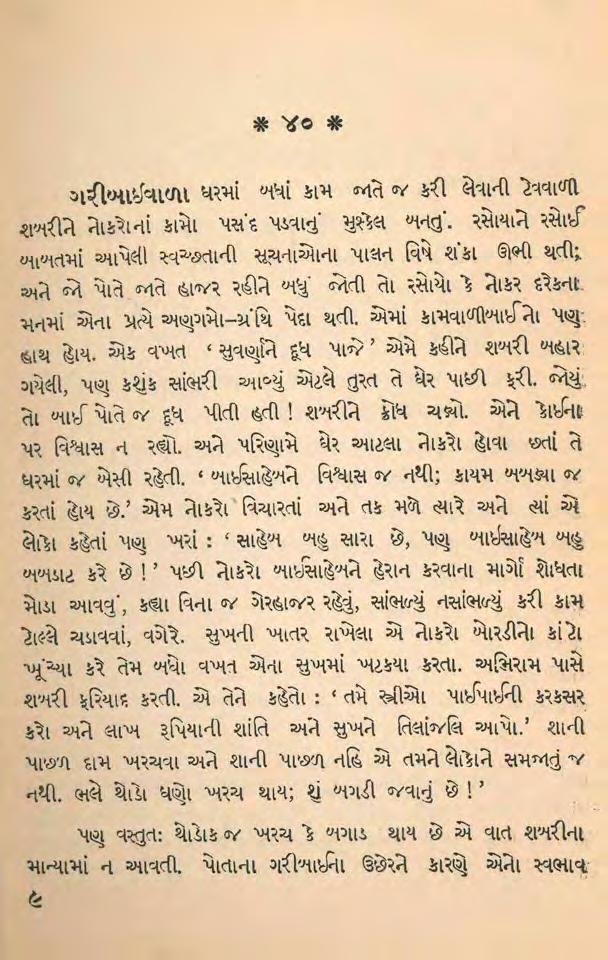 * ૪૦ *
ગરીબાઈવાળા ઘરમાં બધાં કામ જાતે જ કરી લેવાની ટેવવાળી
શબરીને નોકરોનાં કામો પસંદ પડવાનું મુશ્કેલ બનતું. રસોયાને રસોઈ
બાબતમાં આપેલી સ્વચ્છતાની સૂચનાઓના પાલન વિષે શંકા ઊભી થતી;
અને જો પોતે જાતે હાજર રહીને બધું જોતી તો રસોયો કે નોકર દરેકના
મનમાં એના પ્રત્યે અણગમો–ગ્રંથિ પેદા થતી. એમાં કામવાળીબાઈનો પણ
હાથ હોય. એક વખત ‘ સુવર્ણાને દૂધ પાજે ’ એમ કહીને શબરી બહાર
ગયેલી, પણ કશુંક સાંભરી આવ્યું એટલે તુરત તે ઘેર પાછી ફરી. જોયું,
તો બાઈ પોતે જ દૂધ પીતી હતી ! શબરીને ક્રોધ ચઢ્યો. એને કોઈના
પર વિશ્વાસ ન રહ્યો. અને પરિણામે ઘેર આટલા નોકરો હોવા છતાં તે
ઘરમાં જ બેસી રહેતી. ‘ બાઈસાહેબને વિશ્વાસ જ નથી; કાયમ બબડ્યા જ
કરતાં હોય છે.’ એમ નોકરો વિચારતાં અને તક મળે ત્યારે અને ત્યાં એ
લોકો કહેતાં પણ ખરાં : ‘ સાહેબ બહુ સારા છે, પણ બાઈસાહેબ બહુ
બબડાટ કરે છે ! ’ પછી નોકરો બાઈસાહેબને હેરાન કરવાના માર્ગો શોધતા
મોડા આવવું, કહ્યા વિના જ ગેરહાજર રહેવું, સાંભળ્યું નસાંભળ્યું કરી કામ
ટોલ્લે ચડાવવાં, વગેરે. સુખની ખાતર રાખેલા એ નોકરો બોરડીનો કાંટો
ખૂંચ્યા કરે તેમ બધો વખત એના સુખમાં ખટક્યા કરતા. અભિરામ પાસે
શબરી ફરિયાદ કરતી. એ તેને કહેતો : ‘ તમે સ્ત્રીઓ પાઈપાઈની કરકસર
કરો અને લાખ રૂપિયાની શાંતિ અને સુખને તિલાંજલિ આપો.’ શાની
પાછળ દામ ખરચવા અને શાની પાછળ નહિ એ તમને લોકોને સમજાતું જ
નથી. ભલે થોડો ઘણો ખરચ થાય; શું બગડી જવાનું છે ! ’
પણ વસ્તુતઃ થોડોક જ ખરચ કે બગાડ થાય છે એ વાત શબરીના
માન્યામાં ન આવતી. પોતાના ગરીબાઈના ઉછેરને કારણે એનો સ્વભાવ
૯